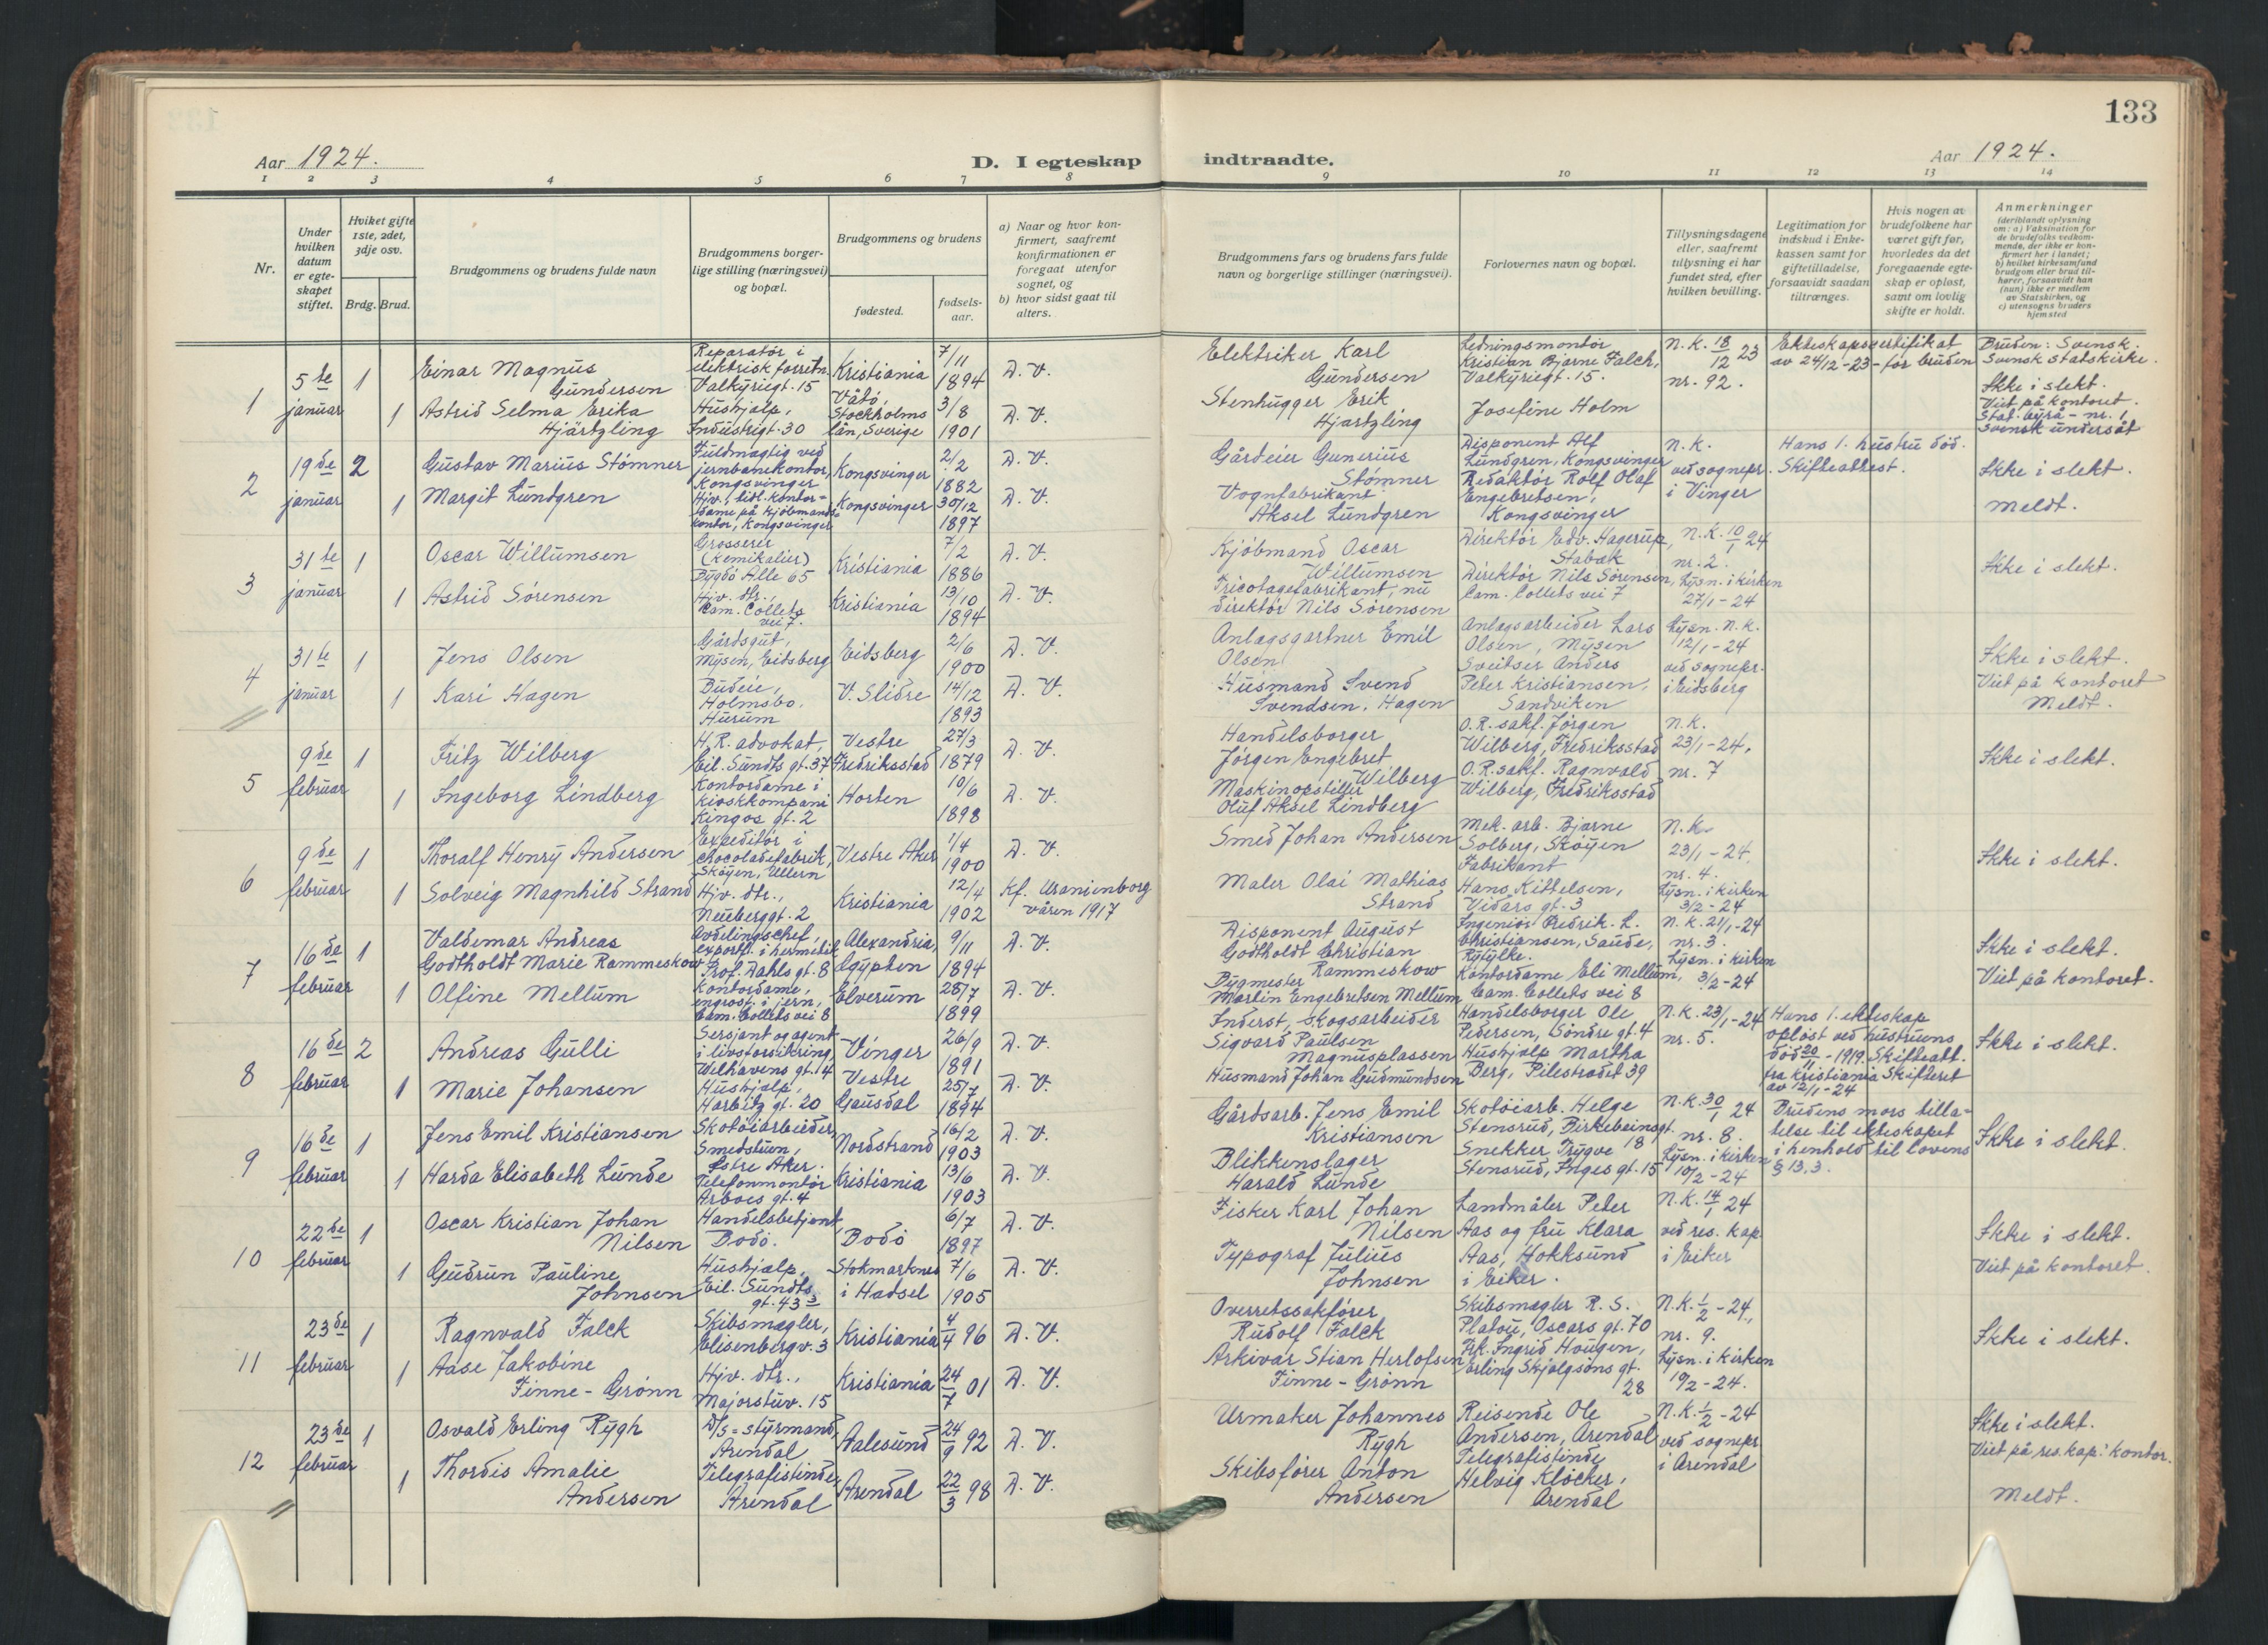 133
Aar 1924.
D. I egteskap indtraadte.
Aar 1924.
1 2 3 4 5 6 7 8 9 10 11 12 13 14
Nr.
Under hvilken datum er egteskapet stiftet.
Hviket gifte 1ste, 2det, 3dje osv.
Brdg. Brud.
Brudgommens og brudens fulde navn
Brudgommens borgerlige stilling (næringsvei) og bopæl.
Brudgommens og brudens
fødested.
fødselsaar.
a) Naar og hvor konfirmert, saafremt konfirmationen er foregaat utenfor sognet, og
b) hvor sidst gaat til alters.
Brudgommens fars og brudens fars fulde navn og borgerlige stillinger (næringsvei).
Forlovernes navn og bopæl.
Tillysningsdagene eller, saafremt tillysning ei har fundet sted, efter hvilken bevilling.
Legitimation for indskud i Enkekassen samt for giftetilladelse, forsaavidt saadan tiltrænges.
Hvis nogen av brudefolkene har været gift før, hvorledes da det foregaaende egteskap er opløst, samt om lovlig skifte er holdt.
Anmerkninger
(deriblandt oplysning om: a) Vaksination for de brudefolks vedkommende, der ikke er konfirmert her i landet;
b) hvilket kirkesamfund brudgom eller brud tilhører, forsaavidt han (hun) ikke er medlem av Statskirken, og
c) utensogns bruders hjemsted
1
5te januar
1
Einar Magnus Gundersen
Reparatør i elektrisk forretn. Valkyriegt. 15
Kristiania
7/11 1894
D. V.
Elektriker Karl Gundersen
Ledningsmontør Kristian Bjarne Falch, Valkyriegt. 15.
N.K. 18/12 23 nr. 92.
Ekteskapscertifikat av 24/12-23- for bruden
Bruden: Svensk. Svensk statskirke.
Ikke i slekt.
Viet på kontoret.
Stat. byrå - nr. 1
Svensk undersåt
1
Astrid Selma Erika Hjärtzling
Hushjælp, Industrigt. 30
Vätö, Stockholms län, Sverige
3/8 1901
D. V.
Stenhugger Erik Hjärtzling
Josefine Holm
2
19de januar
2
Gustav Marius Stømner
Fuldmægtig ved jernbanekontor, Kongsvinger
Kongsvinger
2/2 1882
D. V.
Gårdeier Gunerius Stømner
Disponent Alf Lundgren, Kongsvinger
N.K. ved sognepr. i Vinger
Hans 1. hustru død. Skifteattest.
Ikke i slekt.
Meldt.
1
Margit Lundgren
Hjv., tidl. kontordame på kjøbmandskontor, Kongsvinger
Kongsvinger
30/12 1897
D. V.
Vognfabrikant Aksel Lundgren
Redaktør Rolf Olaf Engebretsen, Kongsvinger
3
31te januar
1
Oscar Willumsen
Grosserer (kemikalier) Bygdø Alle 65
Kristiania
7/2 1886
D. V.
Kjøbmand Oscar Willumsen
Direktør Edv. Hagerup, Stabæk
N.K. 10/1 24 nr. 2.
Lysn. i kirken 27/1-24
Ikke i slekt.
1
Astrid Sørensen
Hjv. dtr., Cam. Collets vei 7.
Kristiania
13/10 1894
D. V.
Tricotagefabrikant, nu direktør Nils Sørensen
Direktør Nils Sørensen, Cam. Collets vei 7
4
31te januar
1
Jens Olsen
Gårdsgut, Mysen, Eidsberg
Eidsberg
2/6 1900
D. V.
Anlægsgartner Emil Olsen
Anlægsarbeider Lars Olsen, Mysen
Lysn. N.K. 12/1-24 ved sognepr. i Eidsberg
Ikke i slekt.
Viet på kontoret
Meldt.
1
Kari Hagen
Budeie, Holmsbo, Hurum
V. Slidre
14/12 1893
D. V.
Husmand Svend Svendsen Hagen
Sveitser Anders Peter Kristiansen, Sandviken
5
9de februar
1
Fritz Wilberg
H.R. advokat, Eil. Sundts gt. 37
Vestre Fredriksstad
27/3 1879
D. V.
Handelsborger Jørgen Engebret Wilberg
O.R. sakf. Jørgen Wilberg, Fredriksstad
N.K. 23/1-24, nr. 7
Ikke i slekt.
1
Ingeborg Lindberg
Kontordame i kioskkompani Kingos gt. 2
Horten
10/6 1898
D. V.
Maskinopstiller Oluf Aksel Lindberg
O.R. sakf. Ragnvald Wilberg, Fredriksstad
6
9de februar
1
Thoralf Henry Andersen
Expeditør i chocoladefabrik, Skøyen, Ullern
Vestre Aker
1/4 1900
D. V.
Smed Johan Andersen
Mek. arb. Bjarne Solberg, Skøyen
N.K. 23/1-24. nr. 4.
Lysn. i kirken 3/2-24
Ikke i slekt.
1
Solveig Magnhild Strand
Hjv. dtr., Neuberggt. 2
Kristiania
12/4 1902
Kf. Uranienborg våren 1917
Maler Olai Mathias Strand
Fabrikant Hans Kittelsen, Vidars gt. 3
7
16de februar
1
Valdemar Andreas Godtholdt Marie Rammeskow
Avdelingschef, exportf. i hermetik Prof. Dahls gt. 8
Alexandria, Ægypten
9/11 1894
D. V.
Disponent August Godtholdt Christian Rammeskow
Ingeniør Fredrik L. Christiansen, Saude, Ryfylke.
N.K. 21/1-24 nr. 3.
Lysn. i kirken 3/2-24
Ikke i slekt.
Viet på kontoret.
1
Olfine Mellum
Kontordame, engrosf. i jern, Cam. Collets vei 8
Elverum
28/7 1899
D. V.
Bygmester Martin Engebretsen Mellum
Kontordame Eli Mellum, Cam. Collets vei 8
8
16de februar
2
Andreas Gulli
Sersjant og agent i livsforsikring, Welhavens gt. 14
Vinger
26/9 1891
D. V.
Inderst, skogsarbeider Sigvard Paulsen Magnusplassen
Handelsborger Ole Pedersen, Søndre gt. 4
N.K. 23/1-24 nr. 5.
Hans 1. ekteskap opløst ved hustruens død 20/11-1919. Skifteatt. fra Kristiania Skifteret av 12/1-24
Ikke i slekt.
1
Marie Johansen
Hushjælp, Harbitz gt. 20
Vestre Gausdal
25/7 1894
D. V.
Husmand Johan Gudmundsen
Hushjælp Martha Berg, Pilestrædet 39
9
16de februar
1
Jens Emil Kristiansen
Skotøiarbeider, Smedstuen, Østre Aker.
Nordstrand
16/2 1903
D. V.
Gårdsarb. Jens Emil Kristiansen
Skotøiarb. Helge Stensrud, Birkebeinsgt. 18
N.K. 30/1 24 nr. 8.
Lysn. i kirken 10/2-24
Brudens mors tilladelse til ekteskapet i henhold til lovens § 13,3.
Ikke i slekt.
1
Harda Elisabeth Lunde
Telefonmontør Arboes gt. 4
Kristiania
13/6 1903
D. V.
Blikkenslager Harald Lunde
Snekker Trygve Stensrud, Inges gt. 15
10
22de februar
1
Oscar Kristian Johan Nilsen
Handelsbetjent, Bodø.
Bodø
6/7 1897
D. V.
Fisker Karl Johan Nilsen
Landmåler Peter Aas og fru Klara Aas, Hokksund i Eiker.
N.K. 14/1 24 ved res. kap. i Eiker
Ikke i slekt.
Viet på kontoret.
1
Gudrun Pauline Johnsen
Hushjælp, Eil. Sundts gt. 43
Stokmarknes i Hadsel
7/6 1905
D. V.
Typograf Julius Johnsen
11
23de februar
1
Ragnvald Falck
Skibsmægler, Elisenbergv. 3
Kristiania
4/4 96
D. V.
Overretssakfører Rudolf Falck
Skibsmægler R. S. Platou, Oscars gt. 70
N.K. 1/2-24, nr. 9.
Lysn. i kirken 10/2-24.
Ikke i slekt.
1
Aase Jakobine Finne-Grønn
Hjv. dtr., Majorstuv. 15
Kristiania
24/7 01
D. V.
Arkivar Stian Herlofsen Finne-Grønn
Frk. Ingrid Hougen, Erling Skjalgsøns gt. 28
12
23de februar
1
Osvald Erling Rygh
D/S=styrmand, Arendal
Aalesund
24/9 92
D. V.
Urmaker Johannes Rygh
Reisende Ole Andersen, Arendal
N.K. 1/2-24 ved sognepr. i Arendal
Ikke i slekt.
Viet på res. kap.' kontor.
Meldt.
1
Thordis Amalie Andersen
Telegrafistinde, Arendal
Arendal
22/3 98
D. V.
Skibsfører Anton Andersen
Telegrafistinde Helvig Kløcker, Arendal